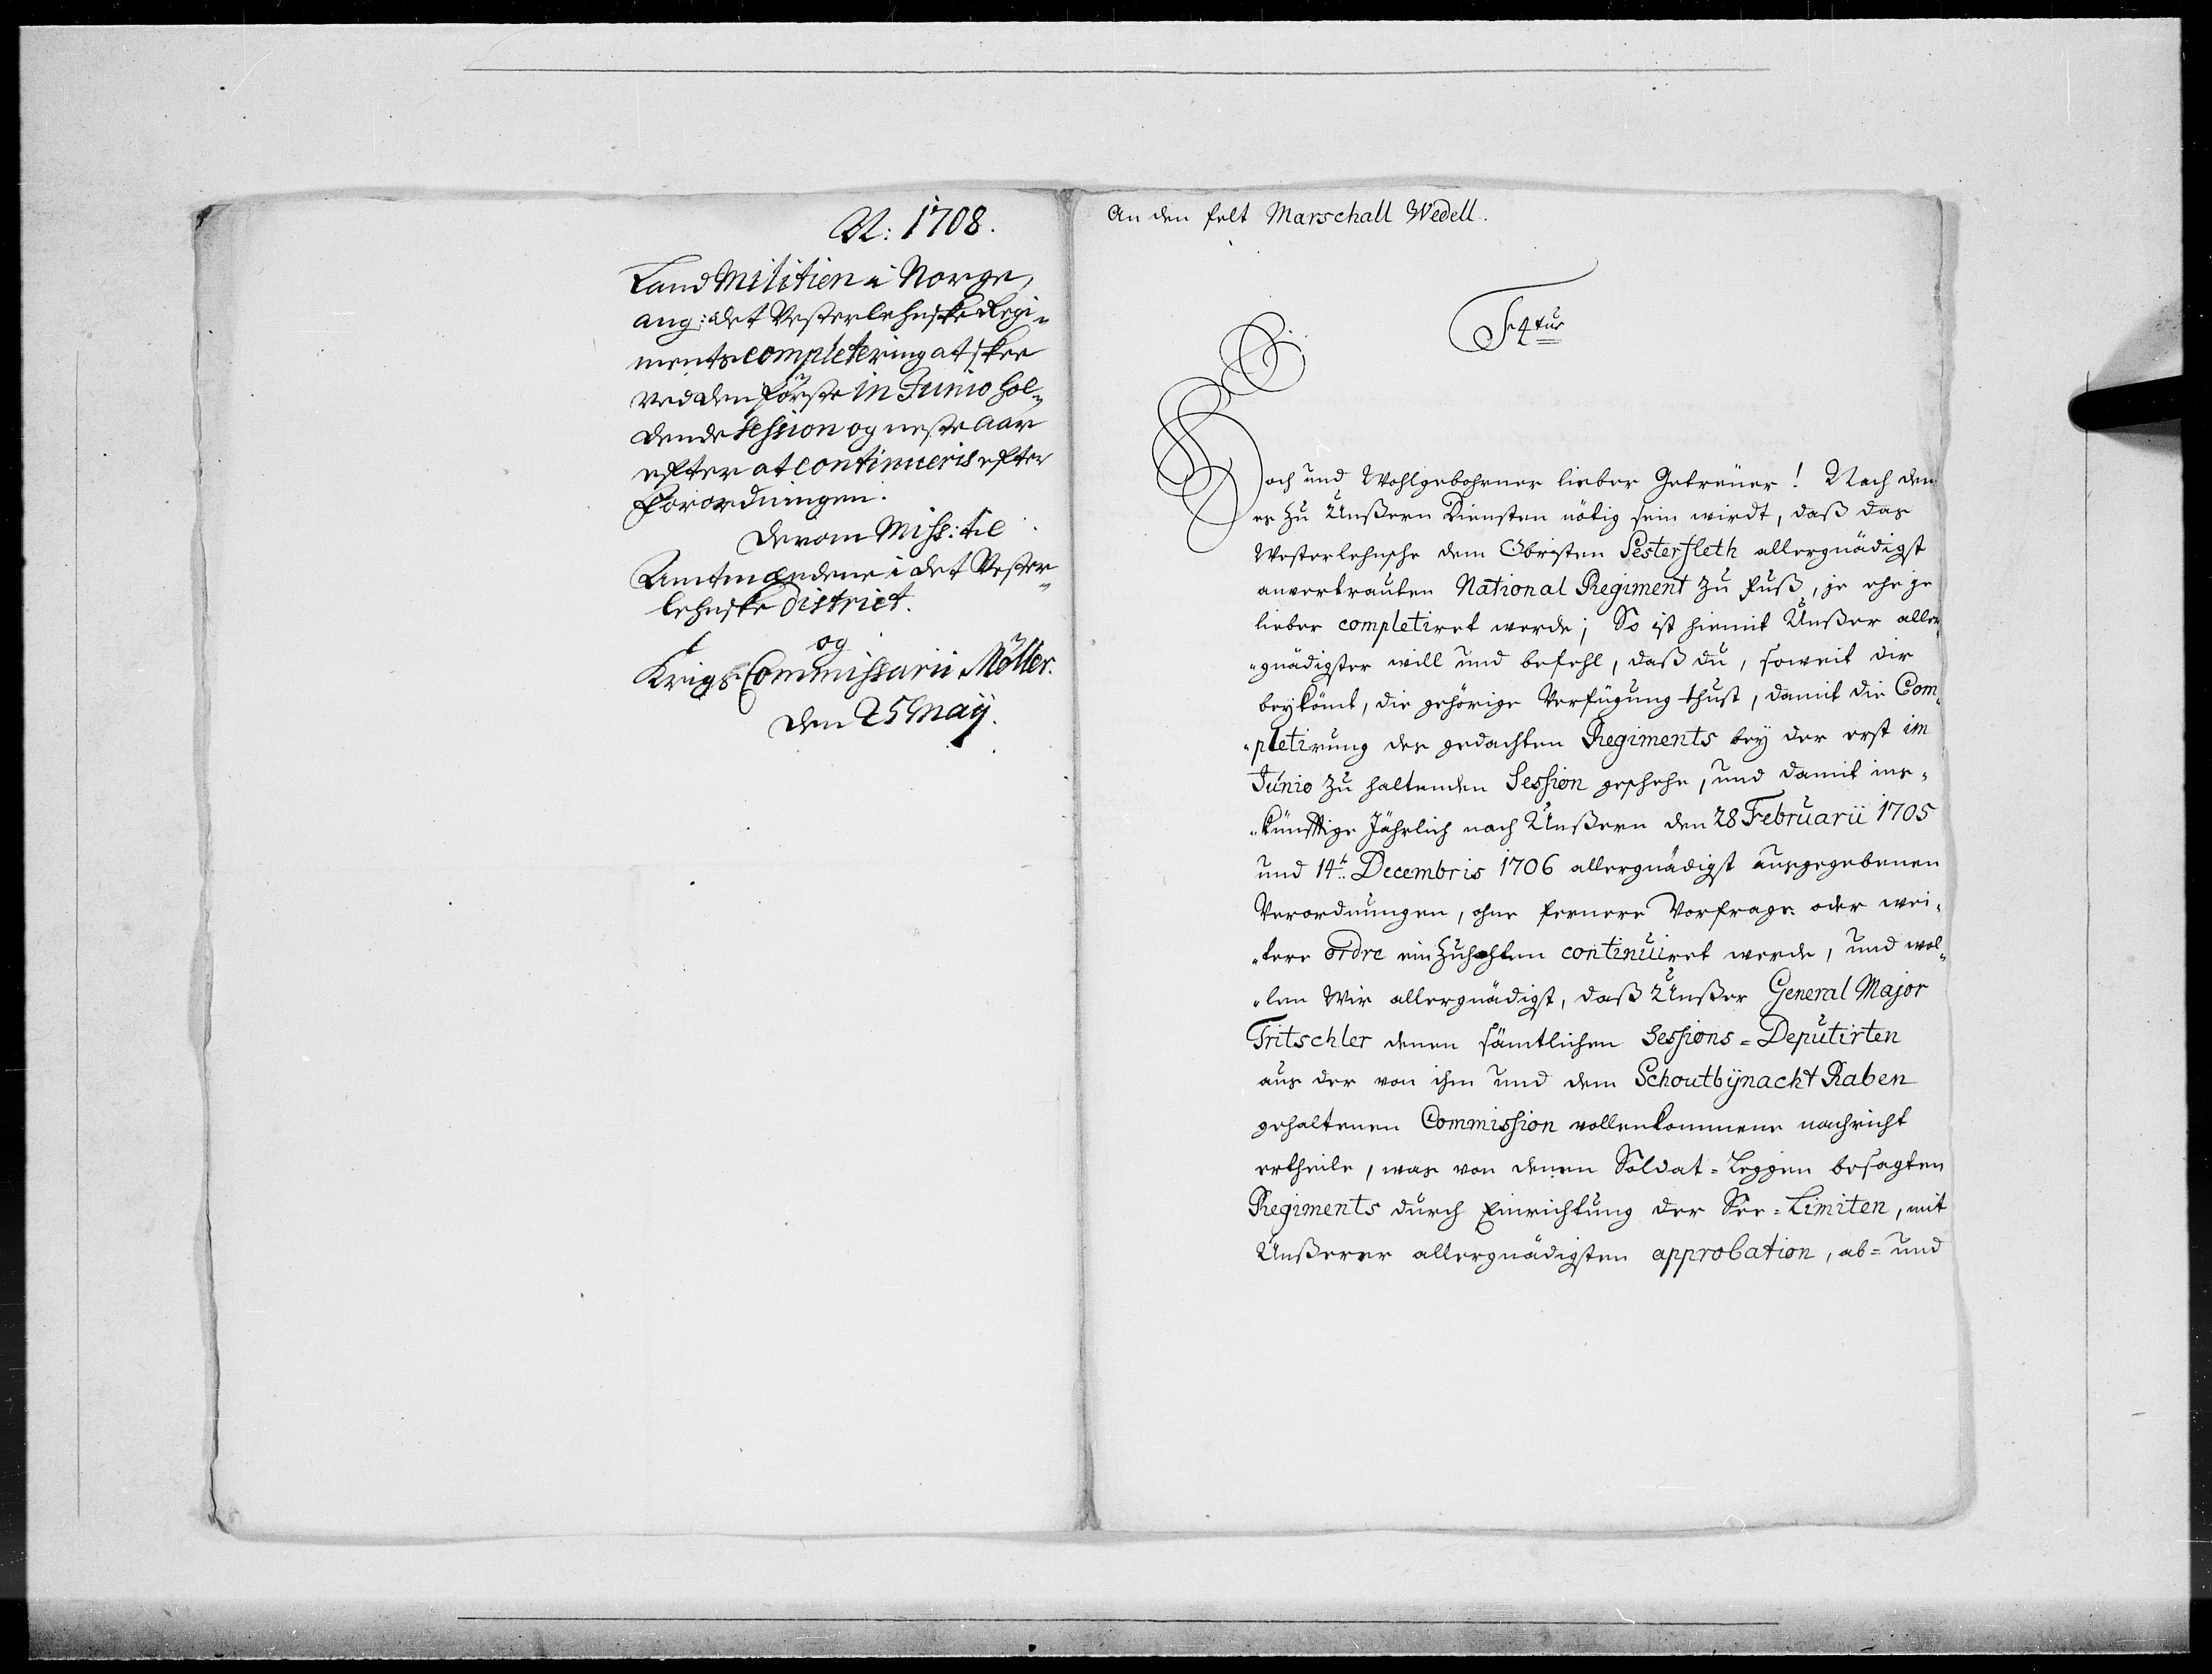 A: 1708.
Land Militien i Norge,
ang: det Vesterlehnske Regi-
ments completering at skee
ved den förste in Junio hol-
dende Session og neste Aar
efter at continueris efter
Forordningen.
derom Miss: til
Amtmændene i det Vester-
lehnske District.
og
Krigs Commissarii Möller.
den 25 Maÿ.
An den felt Marschall Wedell.
F 4tus
Hoch und Wohlgebohrner lieber Getreüer! Nach dem
es zu Unßern Diensten nötig sein wirdt, daß das
Westerlehnsche dem Obristen Pesterfleth allergnädigst
anvertrauten National Regiment zu fuß, je ehe je
lieber completiret werde; So ist hiemit Unßer aller-
-gnädigster will und befehl, daß du, soweit dir
beykömt, die gehörige Verfügung thust, damit die Com-
-pletirung des gedachten Regiments bey der erst im
Junio zu haltenden Session geschehe, und damit ins-
-künfftige Jährlich nach Unßern den 28 Februarii 1705
und 14t. Decembris 1706 allergnädigst ausgegebenen
Verordnungen, ohne fernere Vorfrage oder wei-
-tere ordre einzuhohlen continuiret werde, und wol-
-len Wir allergnädigst, daß Unßer General Major
Tritschler denen sämtlichen Sessions-Deputirten
aus der von ihm und dem Schoutbÿnacht Raben
gehaltenen Commission vollenkommene nachricht
ertheile, was von denen Soldat-Leggen besagten
Regiments durch Einrichtung der See-Limiten, mit
Unßerer allergnädigsten approbation, ab- und